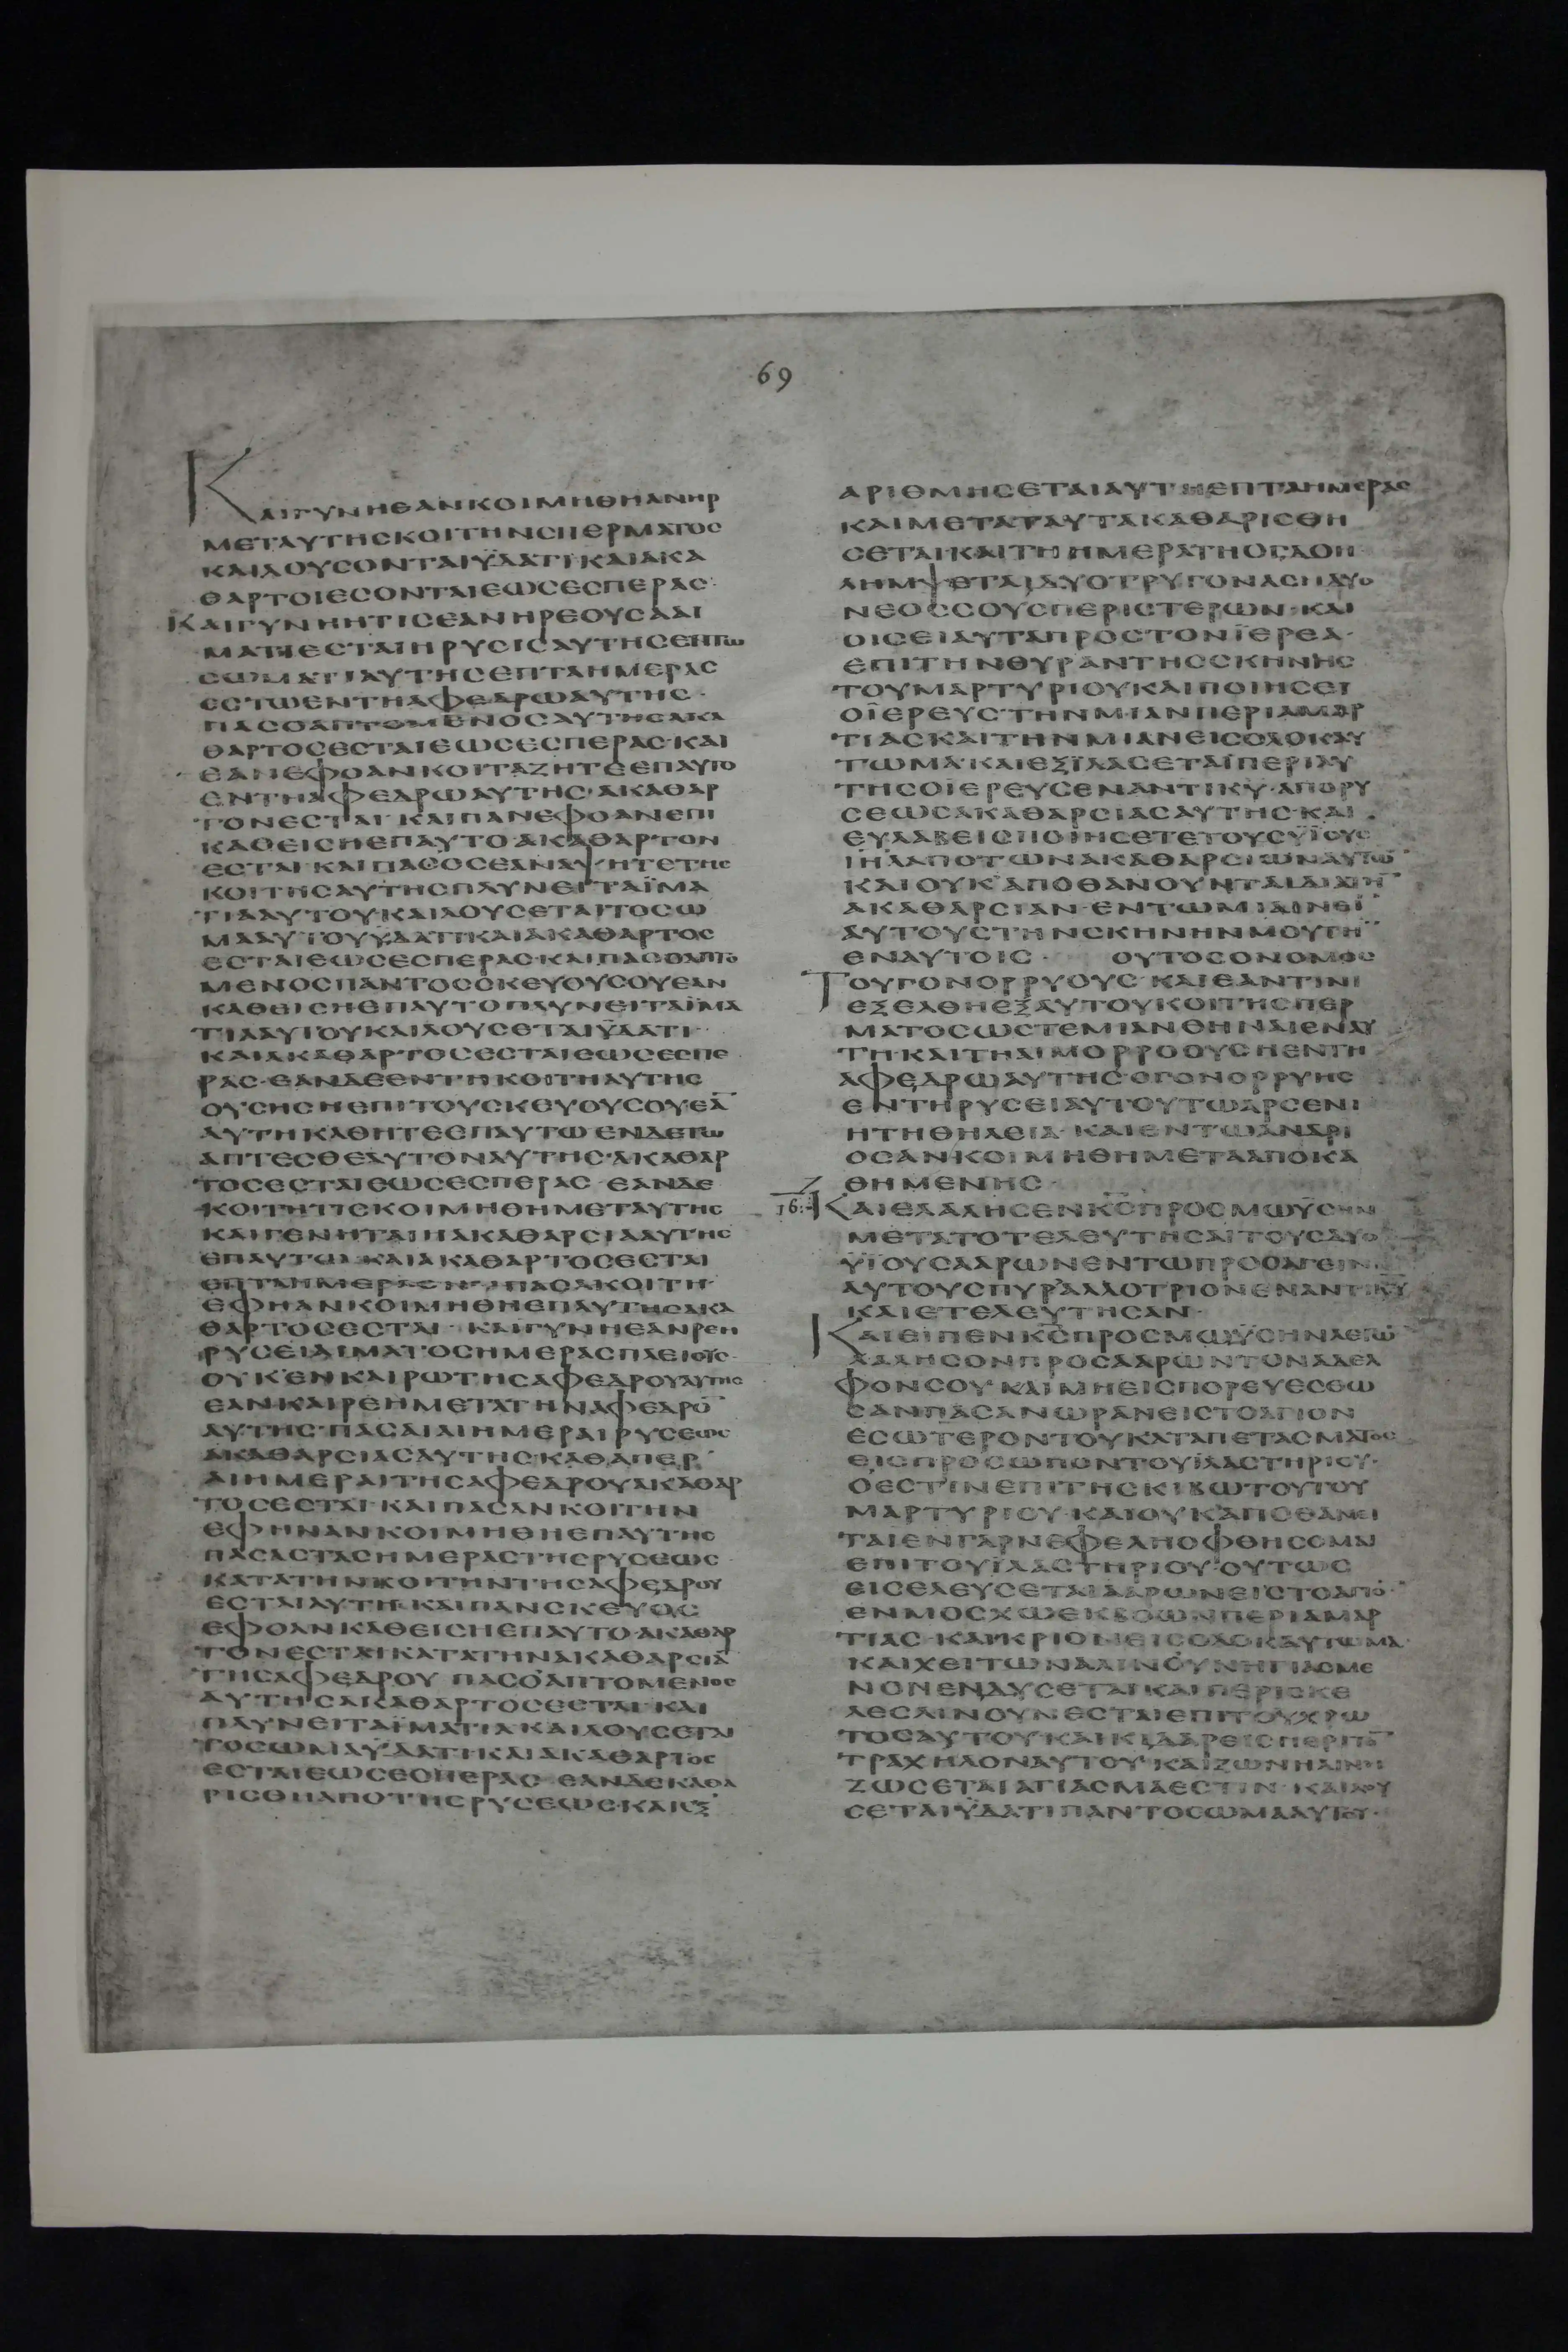 69
ΚΑΙΓΥΝΗΕΑΝΚΟΙΜΗΘΗΑΝΗΡ
ΜΕΤΑΥΤΗСΚΟΙΤΗΝСΠΕΡΜΑΤΟС
ΚΑΙΛΟΥСΟΝΤΑΙΫΔΑΤΙ·ΚΑΙΑΚΑ
ΘΑΡΤΟΙΕСΟΝΤΑΙΕΩСΕСΠΕΡΑС·
ΚΑΙΓΥΝΗΗΤΙСΕΑΝΗΡΕΟΥСΑΑΙ
ΜΑΤΙΕСΤΑΙΗΡΥСΙСΑΥΤΗСΕΝΤΩ
СΩΜΑΤΙΑΥΤΗСΕΠΤΑΗΜΕΡΑС
ΕСΤΩΕΝΤΗΑΦΕΔΡΩΑΥΤΗС·
ΠΑСΟΑΠΤΟΜΕΝΟСΑΥΤΗСΑΚΑ
ΘΑΡΤΟСΕСΤΑΙΕΩСΕСΠΕΡΑС·ΚΑΙ
ΕΑΝΕΦΟΑΝΚΟΙΤΑΖΗΤΕΕΠΑΥΤΟ
ΕΝΤΗΑΦΕΔΡΩΑΥΤΗС·ΑΚΑΘΑΡ
ΤΟΝΕСΤΑΙ·ΚΑΙΠΑΝΕΦΟΑΝΕΠΙ
ΚΑΘΕΙСΗΕΠΑΥΤΟ·ΑΚΑΘΑΡΤΟΝ
ΕСΤΑΙ·ΚΑΙΠΑСΟСΕΑΝΑΨΗΤΕΤΗС
ΚΟΙΤΗСΑΥΤΗСΠΛΥΝΕΙΤΑΪΜΑ
ΤΙΑΑΥΤΟΥΚΑΙΛΟΥСΕΤΑΙΤΟСΩ
ΜΑΑΥΤΟΥΫΔΑΤΙΚΑΙΑΚΑΘΑΡΤΟС
ΕСΤΑΙΕΩСΕСΠΕΡΑС·ΚΑΙΠΑСΟΑΠΤΟ
ΜΕΝΟСΠΑΝΤΟССΚΕΥΟΥСΟΥΕΑΝ
ΚΑΘΕΙСΗΕΠΑΥΤΟΠΛΥΝΕΙΤΑΪΜΑ
ΤΙΑΑΥΤΟΥΚΑΙΛΟΥСΕΤΑΙΫΔΑΤΙ
ΚΑΙΑΚΑΘΑΡΤΟСΕСΤΑΙΕΩСΕСΠΕ
ΡΑС·ΕΑΝΔΕΕΝΤΗΚΟΙΤΗΑΥΤΗС
ΟΥСΗСΗΕΠΙΤΟΥСΚΕΥΟΥСΟΥΕΑ̅
ΑΥΤΗΚΑΘΗΤΕΕΠΑΥΤΩΕΝΔΕΤΩ
ΑΠΤΕСΘΕΑΥΤΟΝΑΥΤΗС·ΑΚΑΘΑΡ
ΤΟСΕСΤΑΙΕΩСΕСΠΕΡΑС·ΕΑΝΔΕ
ΚΟΙΤΗΤΙСΚΟΙΜΗΘΗΜΕΤΑΥΤΗС
ΚΑΙΓΕΝΗΤΑΙΗΑΚΑΘΑΡСΙΑΑΥΤΗС
ΕΠΑΥΤΩ·ΚΑΙΑΚΑΘΑΡΤΟСΕСΤΑΙ
ΕΦΗΑΝΚΟΙΜΗΘΗΕΠΑΥΤΗСΑΚΑ
ΘΑΡΤΟСΕСΤΑΙ·ΚΑΙΓΥΝΗΕΑΝΡΕΗ
ΡΥСΕΙΑΙΜΑΤΟСΗΜΕΡΑСΠΛΕΙΟΥС·
ΟΥΚΕΝΚΑΙΡΩΤΗСΑΦΕΔΡΟΥΑΥΤΗС
ΕΑΝΚΑΙΡΕΗΜΕΤΑΤΗΝΑΦΕΔΡΟ̅
ΑΥΤΗС·ΠΑСΑΙΑΙΗΜΕΡΑΙΡΥСΕΩС
ΑΚΑΘΑΡСΙΑСΑΥΤΗС·ΚΑΘΑΠΕΡ
ΑΙΗΜΕΡΑΙΤΗСΑΦΕΔΡΟΥΑΚΑΘΑΡ
ΤΟСΕСΤΑΙ·ΚΑΙΠΑСΑΝΚΟΙΤΗΝ
ΕΦΗΝΑΝΚΟΙΜΗΘΗΕΠΑΥΤΗС
ΠΑСΑСΤΑСΗΜΕΡΑСΤΗСΡΥСΕΩС
ΚΑΤΑΤΗΝΚΟΙΤΗΝΤΗСΑΦΕΔΡΟΥ
ΕСΤΑΙΑΥΤΗ·ΚΑΙΠΑΝСΚΕΥΟС
ΕΦΟΑΝΚΑΘΕΙСΗΕΠΑΥΤΟ·ΑΚΑΘΑΡ
ΤΟΝΕСΤΑΙΚΑΤΑΤΗΝΑΚΑΘΑΡСΙΑ̅
ΤΗСΑΦΕΔΡΟΥ ΠΑСΟΑΠΤΟΜΕΝΟС
ΑΥΤΗСΑΚΑΘΑΡΤΟСΕСΤΑΙ·ΚΑΙ
ΠΛΥΝΕΙΤΑΪΜΑΤΙΑΚΑΙΛΟΥСΕΤΑΙ
ΤΟСΩΜΑΫΔΑΤΙΚΑΙΑΚΑΘΑΡΤΟС
ΕСΤΑΙΕΩСΕСΠΕΡΑС·ΕΑΝΔΕΚΑΘΑ
ΡΙСΘΗΑΠΟΤΗСΡΥСΕΩС·ΚΑΙΕΞ
ΑΡΙΘΜΗСΕΤΑΙΑΥΤΗΕΠΤΑΗΜΕΡΑС
ΚΑΙΜΕΤΑΤΑΥΤΑΚΑΘΑΡΙСΘΗ
СΕΤΑΙ·ΚΑΙΤΗΗΜΕΡΑΤΗΟΓΔΟΗ
ΛΗΜΨΕΤΑΙΔΥΟΤΡΥΓΟΝΑСΗΔΥΟ
ΝΕΟССΟΥСΠΕΡΙСΤΕΡΩΝ·ΚΑΙ
ΟΙСΕΙΑΥΤΑΠΡΟСΤΟΝΪΕΡΕΑ·
ΕΠΙΤΗΝΘΥΡΑΝΤΗССΚΗΝΗС
ΤΟΥΜΑΡΤΥΡΙΟΥΚΑΙΠΟΙΗСΕΙ
ΟΪΕΡΕΥСΤΗΝΜΙΑΝΠΕΡΙΑΜΑΡ
ΤΙΑСΚΑΙΤΗΝΜΙΑΝΕΙСΟΛΟΚΑΥ
ΤΩΜΑ·ΚΑΙΕΞΪΛΑСΕΤΑΙΠΕΡΙΑΥ
ΤΗСΟΪΕΡΕΥСΕΝΑΝΤΙΚ̅Υ̅·ΑΠΟΡΥ
СΕΩСΑΚΑΘΑΡСΙΑСΑΥΤΗС·ΚΑΙ
ΕΥΛΑΒΕΙСΠΟΙΗСΕΤΕΤΟΥСΫΪΟΥС
Ι̅Η̅Λ̅ΑΠΟΤΩΝΑΚΑΘΑΡСΙΩΝΑΥΤΩ̅
ΚΑΙΟΥΚΑΠΟΘΑΝΟΥΝΤΑΙΔΙΑΤΗ̅
ΑΚΑΘΑΡСΙΑΝ·ΕΝΤΩΜΙΑΙΝΕΙ̅
ΑΥΤΟΥСΤΗΝСΚΗΝΗΝΜΟΥΤΗ̅
ΕΝΑΥΤΟΙС· ΟΥΤΟСΟΝΟΜΟС
ΤΟΥΓΟΝΟΡΡΥΟΥС·ΚΑΙΕΑΝΤΙΝΙ
ΕΞΕΛΘΗΕΞΑΥΤΟΥΚΟΙΤΗСΠΕΡ
ΜΑΤΟСΩСΤΕΜΙΑΝΘΗΝΑΙΕΝΑΥ
ΤΗ·ΚΑΙΤΗΑΙΜΟΡΡΟΟΥСΗΕΝΤΗ
ΑΦΕΔΡΩΑΥΤΗС·ΟΓΟΝΟΡΡΥΗС
ΕΝΤΗΡΥСΕΙΑΥΤΟΥΤΩΑΡСΕΝΙ
ΗΤΗΘΗΛΕΙΑ·ΚΑΙΕΝΤΩΑΝΔΡΙ
ΟСΑΝΚΟΙΜΗΘΗΜΕΤΑΑΠΟΚΑ
ΘΗΜΕΝΗС·
16. ΚΑΙΕΛΑΛΗСΕΝΚ̅С̅ΠΡΟСΜΩΫСΗΝ
ΜΕΤΑΤΟΤΕΛΕΥΤΗСΑΙΤΟΥСΔΥΟ
ΫΪΟΥСΑΑΡΩΝΕΝΤΩΠΡΟСΑΓΕΙΝ
ΑΥΤΟΥСΠΥΡΑΛΛΟΤΡΙΟΝΕΝΑΝΤΙΚ̅Υ̅
ΚΑΙΕΤΕΛΕΥΤΗСΑΝ·
ΚΑΙΕΙΠΕΝΚ̅С̅ΠΡΟСΜΩΫСΗΝΛΕΓΩ̅
ΛΑΛΗСΟΝΠΡΟСΑΑΡΩΝΤΟΝΑΔΕΛ
ΦΟΝСΟΥ·ΚΑΙΜΗΕΙСΠΟΡΕΥΕСΘΩ
СΑΝΠΑСΑΝΩΡΑΝΕΙСΤΟΑΓΙΟΝ
ΕСΩΤΕΡΟΝΤΟΥΚΑΤΑΠΕΤΑСΜΑΤΟС
ΕΙСΠΡΟСΩΠΟΝΤΟΥΪΛΑСΤΗΡΙΟΥ·
ΟΕСΤΙΝΕΠΙΤΗСΚΙΒΩΤΟΥΤΟΥ
ΜΑΡΤΥΡΙΟΥ·ΚΑΙΟΥΚΑΠΟΘΑΝΕΙ
ΤΑΙΕΝΓΑΡΝΕΦΕΛΗΟΦΘΗСΟΜΑΙ
ΕΠΙΤΟΥΪΛΑСΤΗΡΙΟΥ·ΟΥΤΩС
ΕΙСΕΛΕΥСΕΤΑΙΑΑΡΩΝΕΙСΤΟΑΓΙΟ̅
ΕΝΜΟСΧΩΕΚΒΟΩΝΠΕΡΙΑΜΑΡ
ΤΙΑС·ΚΑΙΚΡΙΟΝΕΙСΟΛΟΚΑΥΤΩΜΑ·
ΚΑΙΧΕΙΤΩΝΑΛΙΝΟΥΝΗΓΙΑСΜΕ
ΝΟΝΕΝΔΥСΕΤΑΙ·ΚΑΙΠΕΡΙСΚΕ
ΛΕСΛΙΝΟΥΝΕСΤΑΙΕΠΙΤΟΥΧΡΩ
ΤΟСΑΥΤΟΥ·ΚΑΙΚΙΔΑΡΕΙСΠΕΡΙΤΟ̅
ΤΡΑΧΗΛΟΝΑΥΤΟΥ·ΚΑΙΖΩΝΗΛΙΝΗ
ΖΩСΕΤΑΙΑΓΙΑСΜΑΕСΤΙΝ·ΚΑΙΛΟΥ
СΕΤΑΙΫΔΑΤΙΠΑΝΤΟСΩΜΑΑΥΤΟΥ·